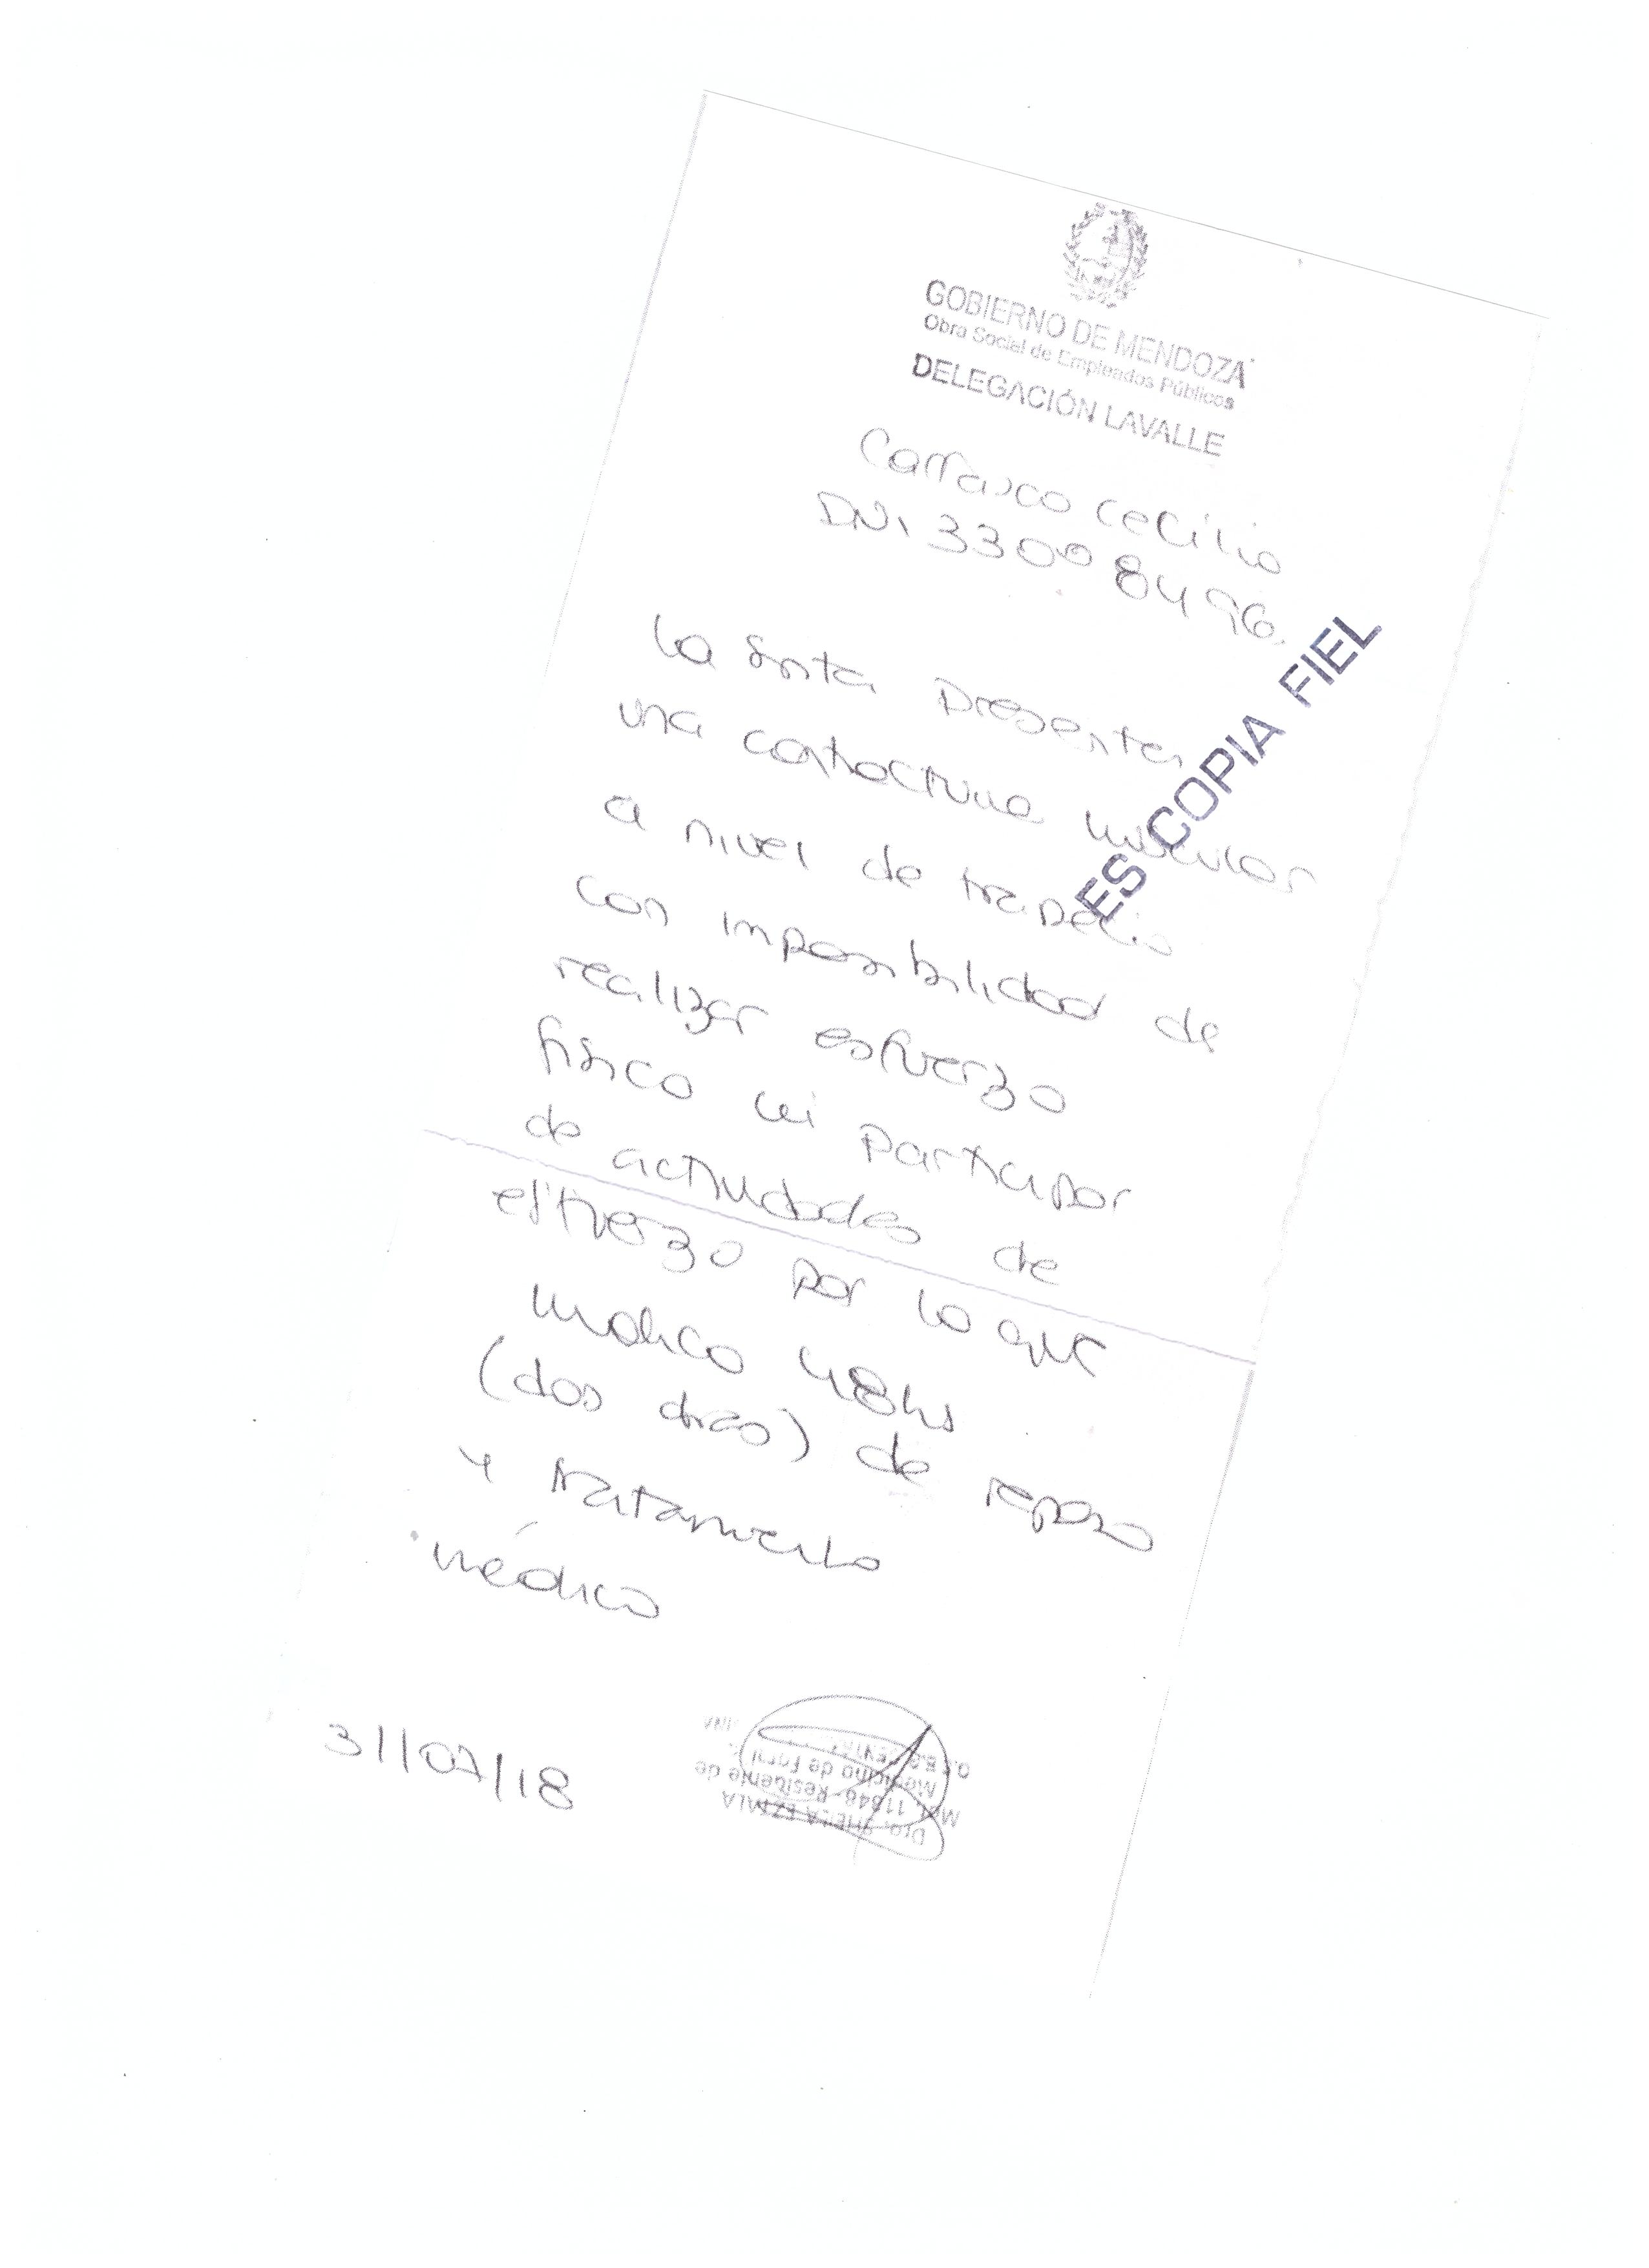 GOBIERNO DE MENDOZA
Obra Social de Empleados Públicos
DELEGACIÓN LAVALLE
Carrasco Cecilia
DNI 33008496.
La Srita presenta
una contractura muscular
a nivel de trapecio
con imposibilidad de
realizar esfuerzo
físico ni participar
de actividades de
esfuerzo por lo que
indico 48hs
(dos días) de reposo
y tratamiento
médico
ES COPIA FIEL
31/07/18
Dra.
Mat. 11846-Residente de
Medicina de